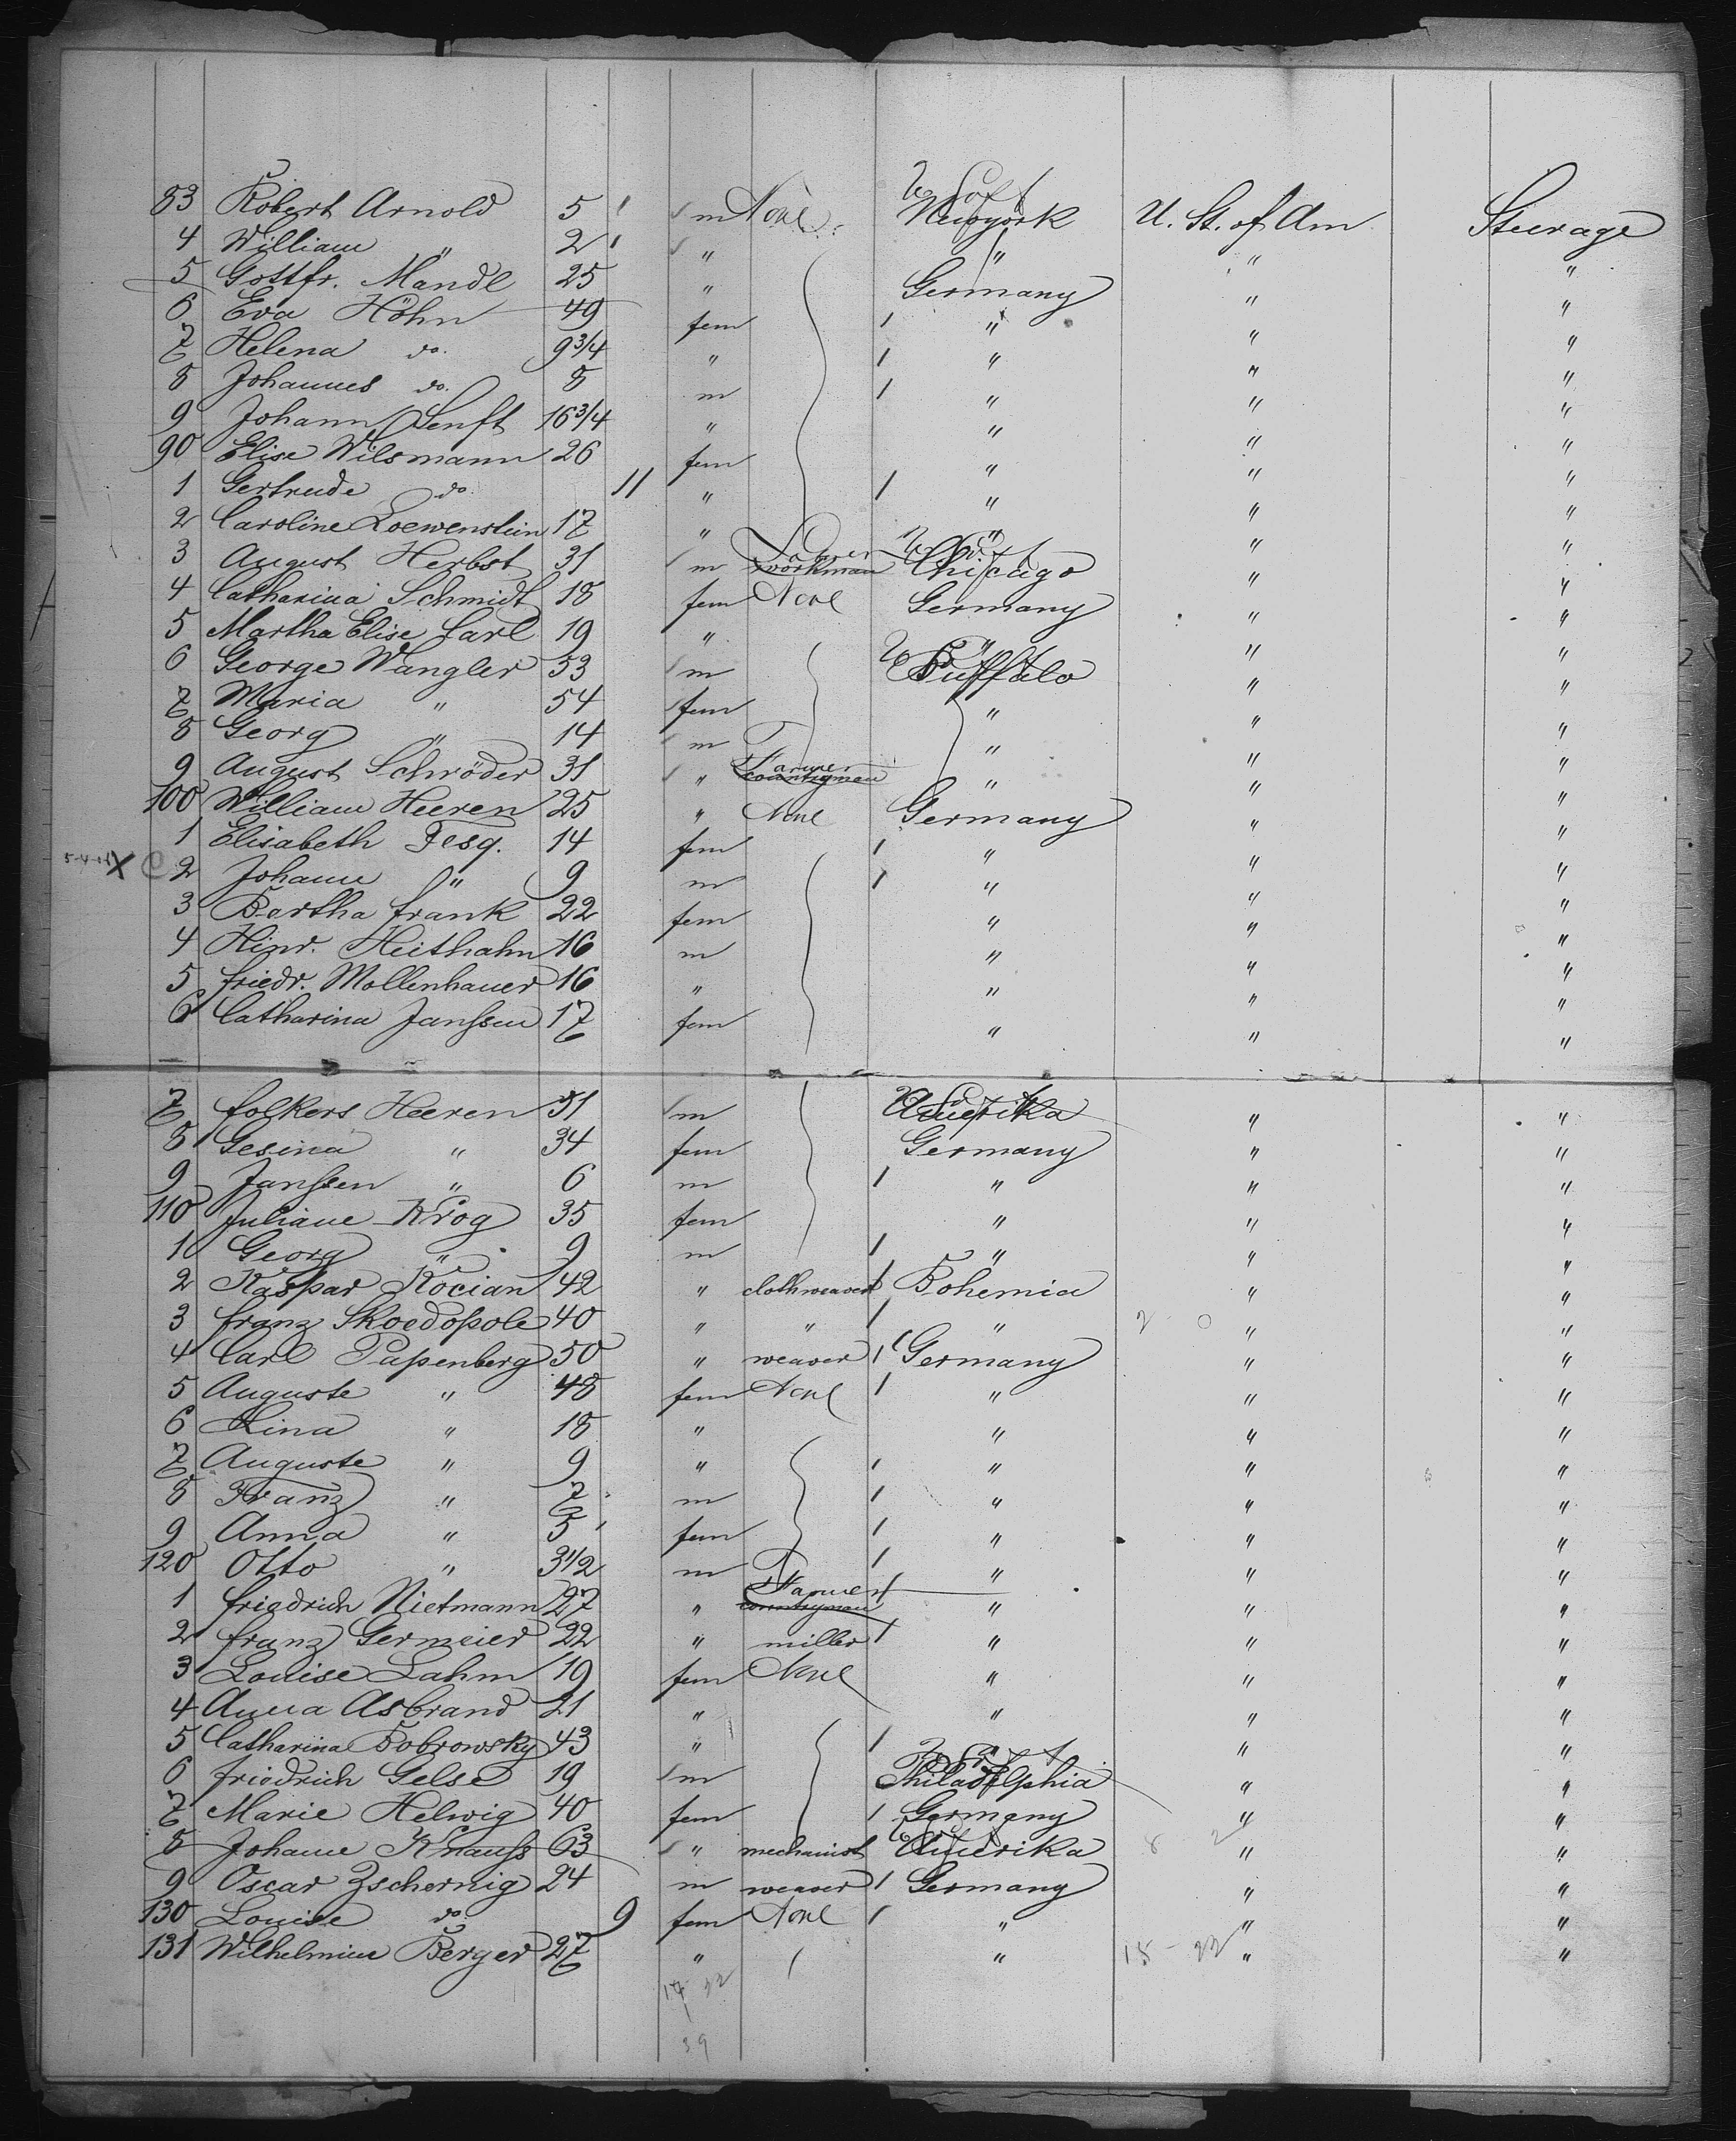 83 Robert Arnold 5 m None U S of A Newyork U. St. of Am Steerage
4 William " 2 " " " "
5 Gottfr. Mandl 25 " Germany " "
6 Eva Höhn 49 fem 1 " " "
7 Helena do. 9 3/4 " 1 " " "
8 Johannes do. 8 m 1 " " "
9 Johann Senft 16 3/4 " " " "
90 Elise Wilsmann 26 fem " " "
1 Gertrude do 11 " 1 " " "
2 Caroline Loewenstein 17 " " " "
3 August Herbst 31 m workman Chicago " "
4 Catharina Schmidt 18 fem None Germany " "
5 Martha Elise Carl 19 " " " "
6 George Wangler 53 m Buffalo " "
7 Maria " 54 fem " " "
8 Georg " 14 m " " "
9 August Schröder 31 " Farmer countryman " " "
100 William Heeren 25 " None Germany " "
1 Elisabeth Fesq. 14 fem 1 " " "
X 2 Johann " 9 m 1 " " "
3 Bertha Frank 22 fem " " "
4 Hinr. Heithahn 16 m " " "
5 Friedr. Mollenhauer 16 " " " "
6 Catharina Janssen 17 fem " " "
7 Folkers Heeren 31 m Amerika " "
8 Gesina " 34 fem Germany " "
9 Janssen " 6 m 1 " " "
110 Juliane Krog 35 fem " " "
1 Georg " 9 m 1 " " "
2 Kaspar Kocian 42 " clothweaver 1 Bohemia " "
3 Franz Skoedopole 40 " " 1 " " "
4 Carl Papenberg 50 " weaver 1 Germany " "
5 Auguste " 48 fem None 1 " " "
6 Lina " 18 " " " "
7 Auguste " 9 " 1 " " "
8 Franz " 7 m 1 " " "
9 Anna " 5 fem 1 " " "
120 Otto " 3 1/2 m 1 " " "
1 Friedrich Nietmann 27 " Farmer countryman 1 " " "
2 Franz Germeier 22 " miller 1 " " "
3 Louise Lahm 19 fem None " " "
4 Anna Asbrand 21 " " " "
5 Catharina Bobrowsky 43 " 1 " " "
6 Friedrich Gelse 19 m Philadelphia " "
7 Marie Helwig 40 fem 1 Germany " "
8 Johann Knauss 63 " mechanist Amerika " "
9 Oscar Zschernig 24 m weaver 1 Germany " "
130 Louise do. 9 fem None 1 " " "
131 Wilhelmine Berger 27 " " 15 - 22 " "
39